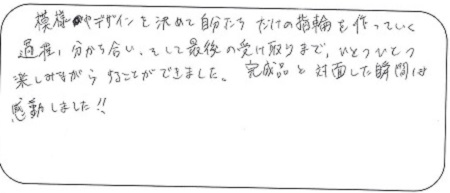 模様やデザインを決めて自分たちだけの指輪を作っていく
過程、分かち合い、そして最後の受け取りまで、ひとつひとつ
楽しみながらすることができました。完成品と対面した瞬間は
感動しました!!